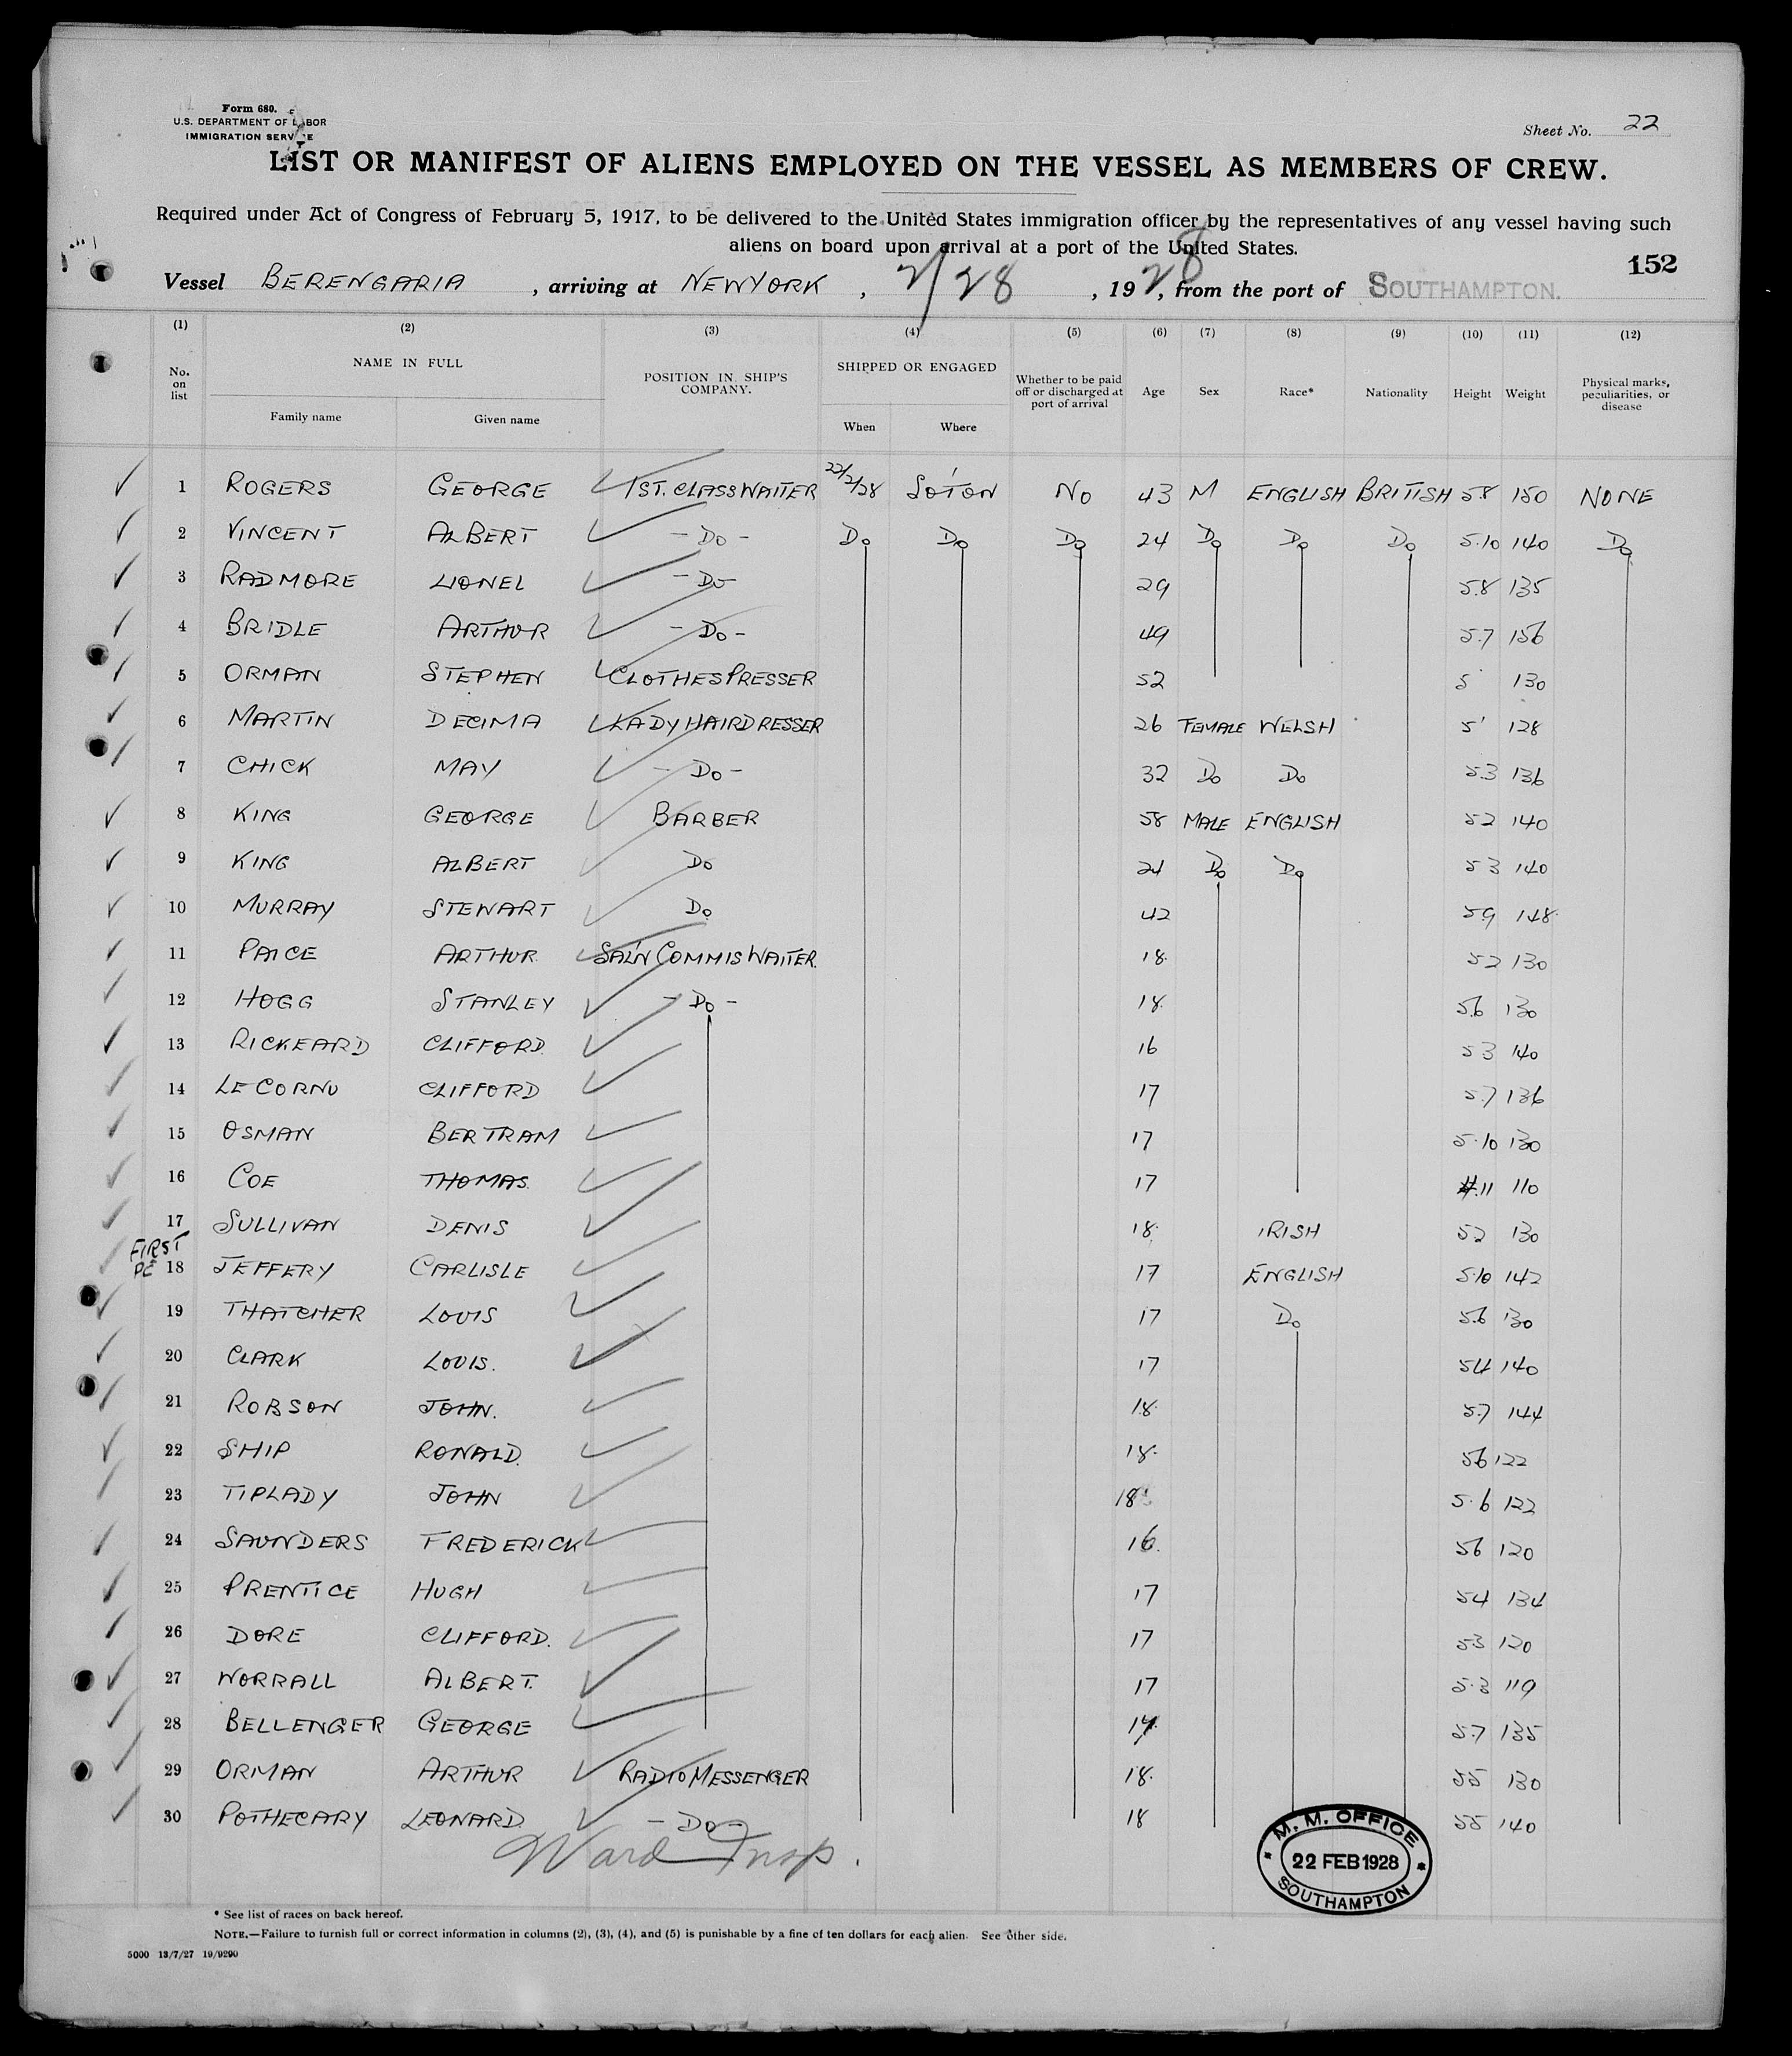 Form 680.
U.S. DEPARTMENT OF LABOR
IMMIGRATION SERVICE
Sheet No. 22
LIST OR MANIFEST OF ALIENS EMPLOYED ON THE VESSEL AS MEMBERS OF CREW.
Required under Act of Congress of February 5, 1917, to be delivered to the United States immigration officer by the representatives of any vessel having such
aliens on board upon arrival at a port of the United States.
152
Vessel BERENGARIA, arriving at NEW YORK, 2/28, 1928, from the port of SOUTHAMPTON.
(1) (2) (3) (4) (5) (6) (7) (8) (9) (10) (11) (12)
No. on list NAME IN FULL Family name Given name POSITION IN SHIP'S COMPANY. SHIPPED OR ENGAGED When Where Whether to be paid off or discharged at port of arrival Age Sex Race* Nationality Height Weight Physical marks, peculiarities, or disease
1 ROGERS GEORGE 1ST. CLASS WAITER 22/2/28 SO'TON NO 43 M ENGLISH BRITISH 5.8 150 NONE
2 VINCENT ALBERT - DO - DO DO DO 24 DO DO DO 5.10 140 DO
3 RADMORE LIONEL - DO - 29 5.8 135
4 BRIDLE ARTHUR - DO - 49 5.7 156
5 ORMAN STEPHEN CLOTHES PRESSER 52 5 130
6 MARTIN DECIMA LADY HAIRDRESSER 26 FEMALE WELSH 5' 128
7 CHICK MAY - DO - 32 DO DO 5.3 136
8 KING GEORGE BARBER 58 MALE ENGLISH 52 140
9 KING ALBERT DO 24 DO DO 53 140
10 MURRAY STEWART DO 42 59 148
11 PAICE ARTHUR SAL'N COMMIS WAITER. 18. 52 130
12 HOGG STANLEY - DO - 18. 56 130
13 RICKEARD CLIFFORD. 16 53 140
14 LE CORNU CLIFFORD 17 5.7 136
15 OSMAN BERTRAM 17 5.10 130
16 COE THOMAS. 17 4.11 110
17 SULLIVAN DENIS 18. IRISH 52 130
FIRST
18 JEFFERY CARLISLE 17 ENGLISH 5.10 142
19 THATCHER LOUIS 17 DO 5.6 130
20 CLARK LOUIS. 17 54 140
21 ROBSON JOHN. 18. 5.7 144
22 SHIP RONALD. 18. 56 122
23 TIPLADY JOHN 18 5.6 122
24 SAUNDERS FREDERICK 16. 56 120
25 PRENTICE HUGH 17 54 134
26 DORE CLIFFORD. 17 53 120
27 WORRALL ALBERT. 17 5.3 119
28 BELLENGER GEORGE 17 5.7 135
29 ORMAN ARTHUR RADIO MESSENGER 18. 55 130
30 POTHECARY LEONARD. - DO - 18 55 140
Ward Insp.
M. M. OFFICE
22 FEB 1928
SOUTHAMPTON
* See list of races on back hereof.
NOTE.—Failure to furnish full or correct information in columns (2), (3), (4), and (5) is punishable by a fine of ten dollars for each alien. See other side.
5000 13/7/27 19/9290